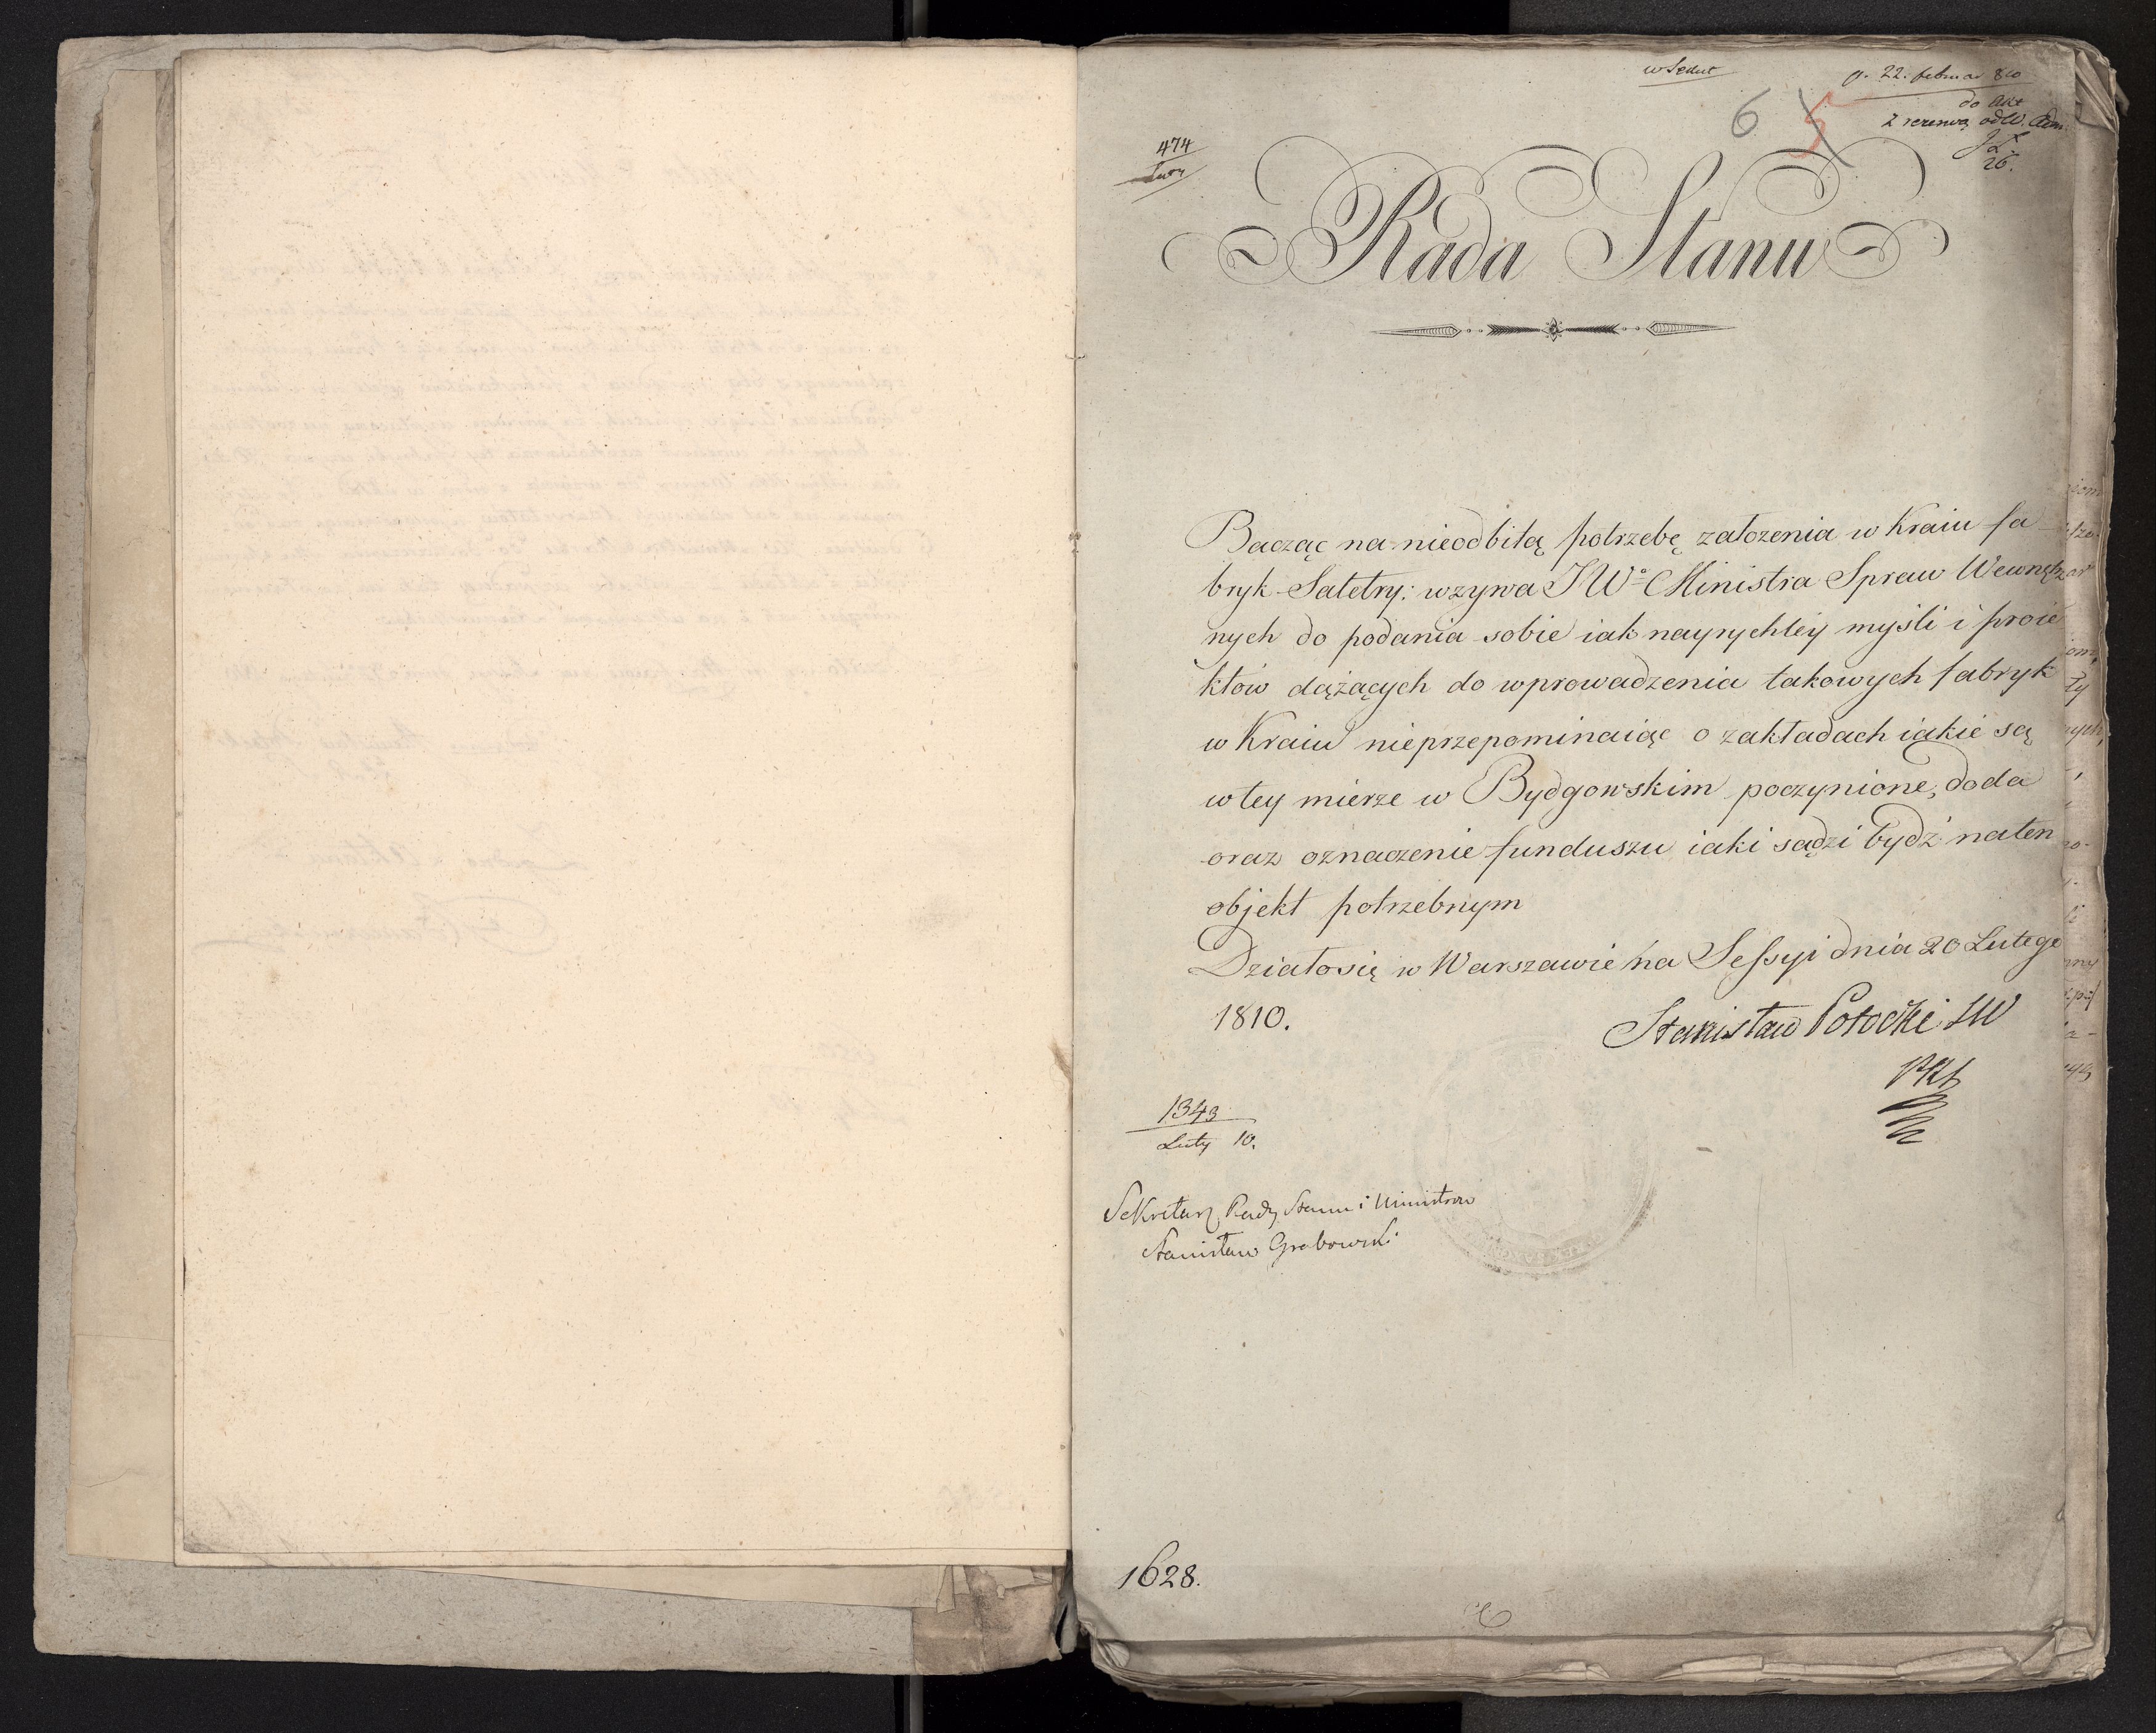 6 5
p. 22. februar 810
do akt
z rezerwą od W. Adm.
26.
474
Luty
Rada Stanu
Bacząc na nieodbitą potrzebę założenia w Kraiu fa
bryk Saletry: wzywa JWo Ministra Spraw Wewnętrz
nych do podania sobie iak nayrychley myśli i proie
któw dążących do wprowadzenia takowych fabryk
w Kraiu nieprzepominaiąc o zakładach iakie są
w tey mierze w Bydgowskim poczynione, doda
oraz oznaczenie funduszu iaki sądzi bydź na ten
objekt potrzebnym
Działo się w Warszawie na Sessyi dnia 20 Lutego
1810.
Stanisław Potocki SW
1343
Luty 10.
Sekretarz Rady Stanu i Ministrow
Stanisław Grabowski
1628.